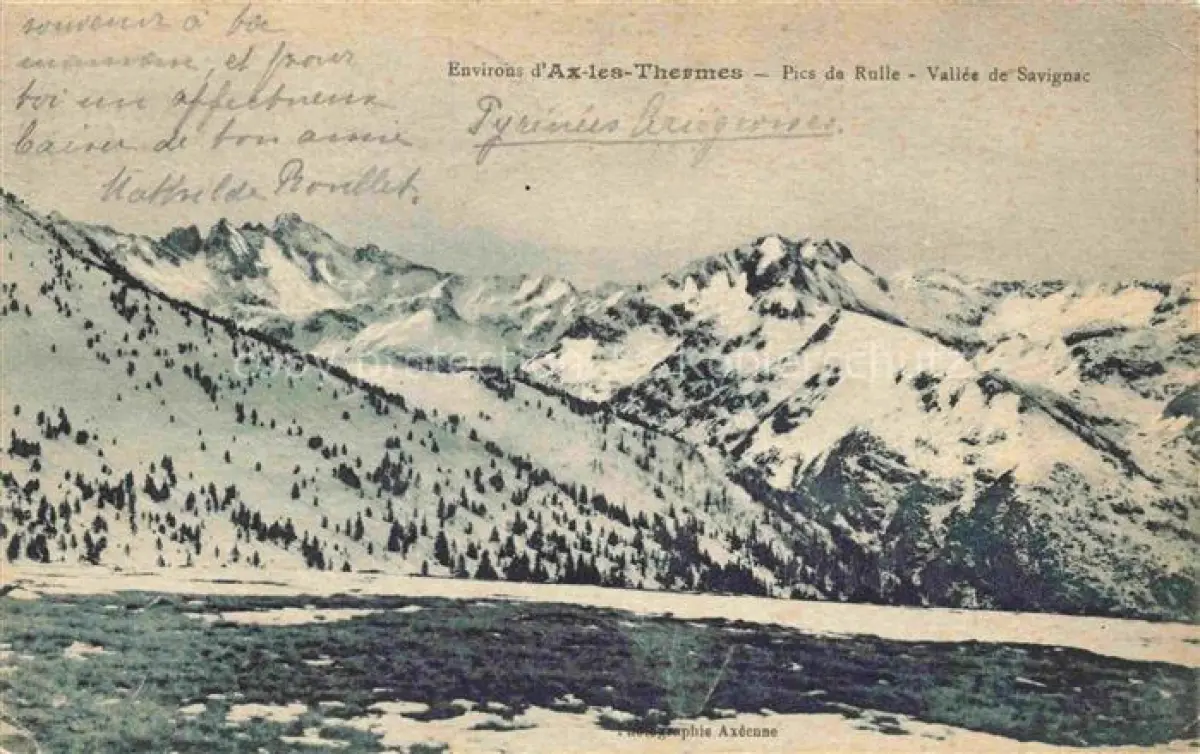 souvenir à ta
maman et pour
toi un affectueux
baiser de ton amie
Mathilde Roullet.
Environs d'Ax-les-Thermes — Pics de Rulle - Vallée de Savignac
Pyrénées Ariégeoises.
Copyright protection Kopierschutz
Photographie Axéenne